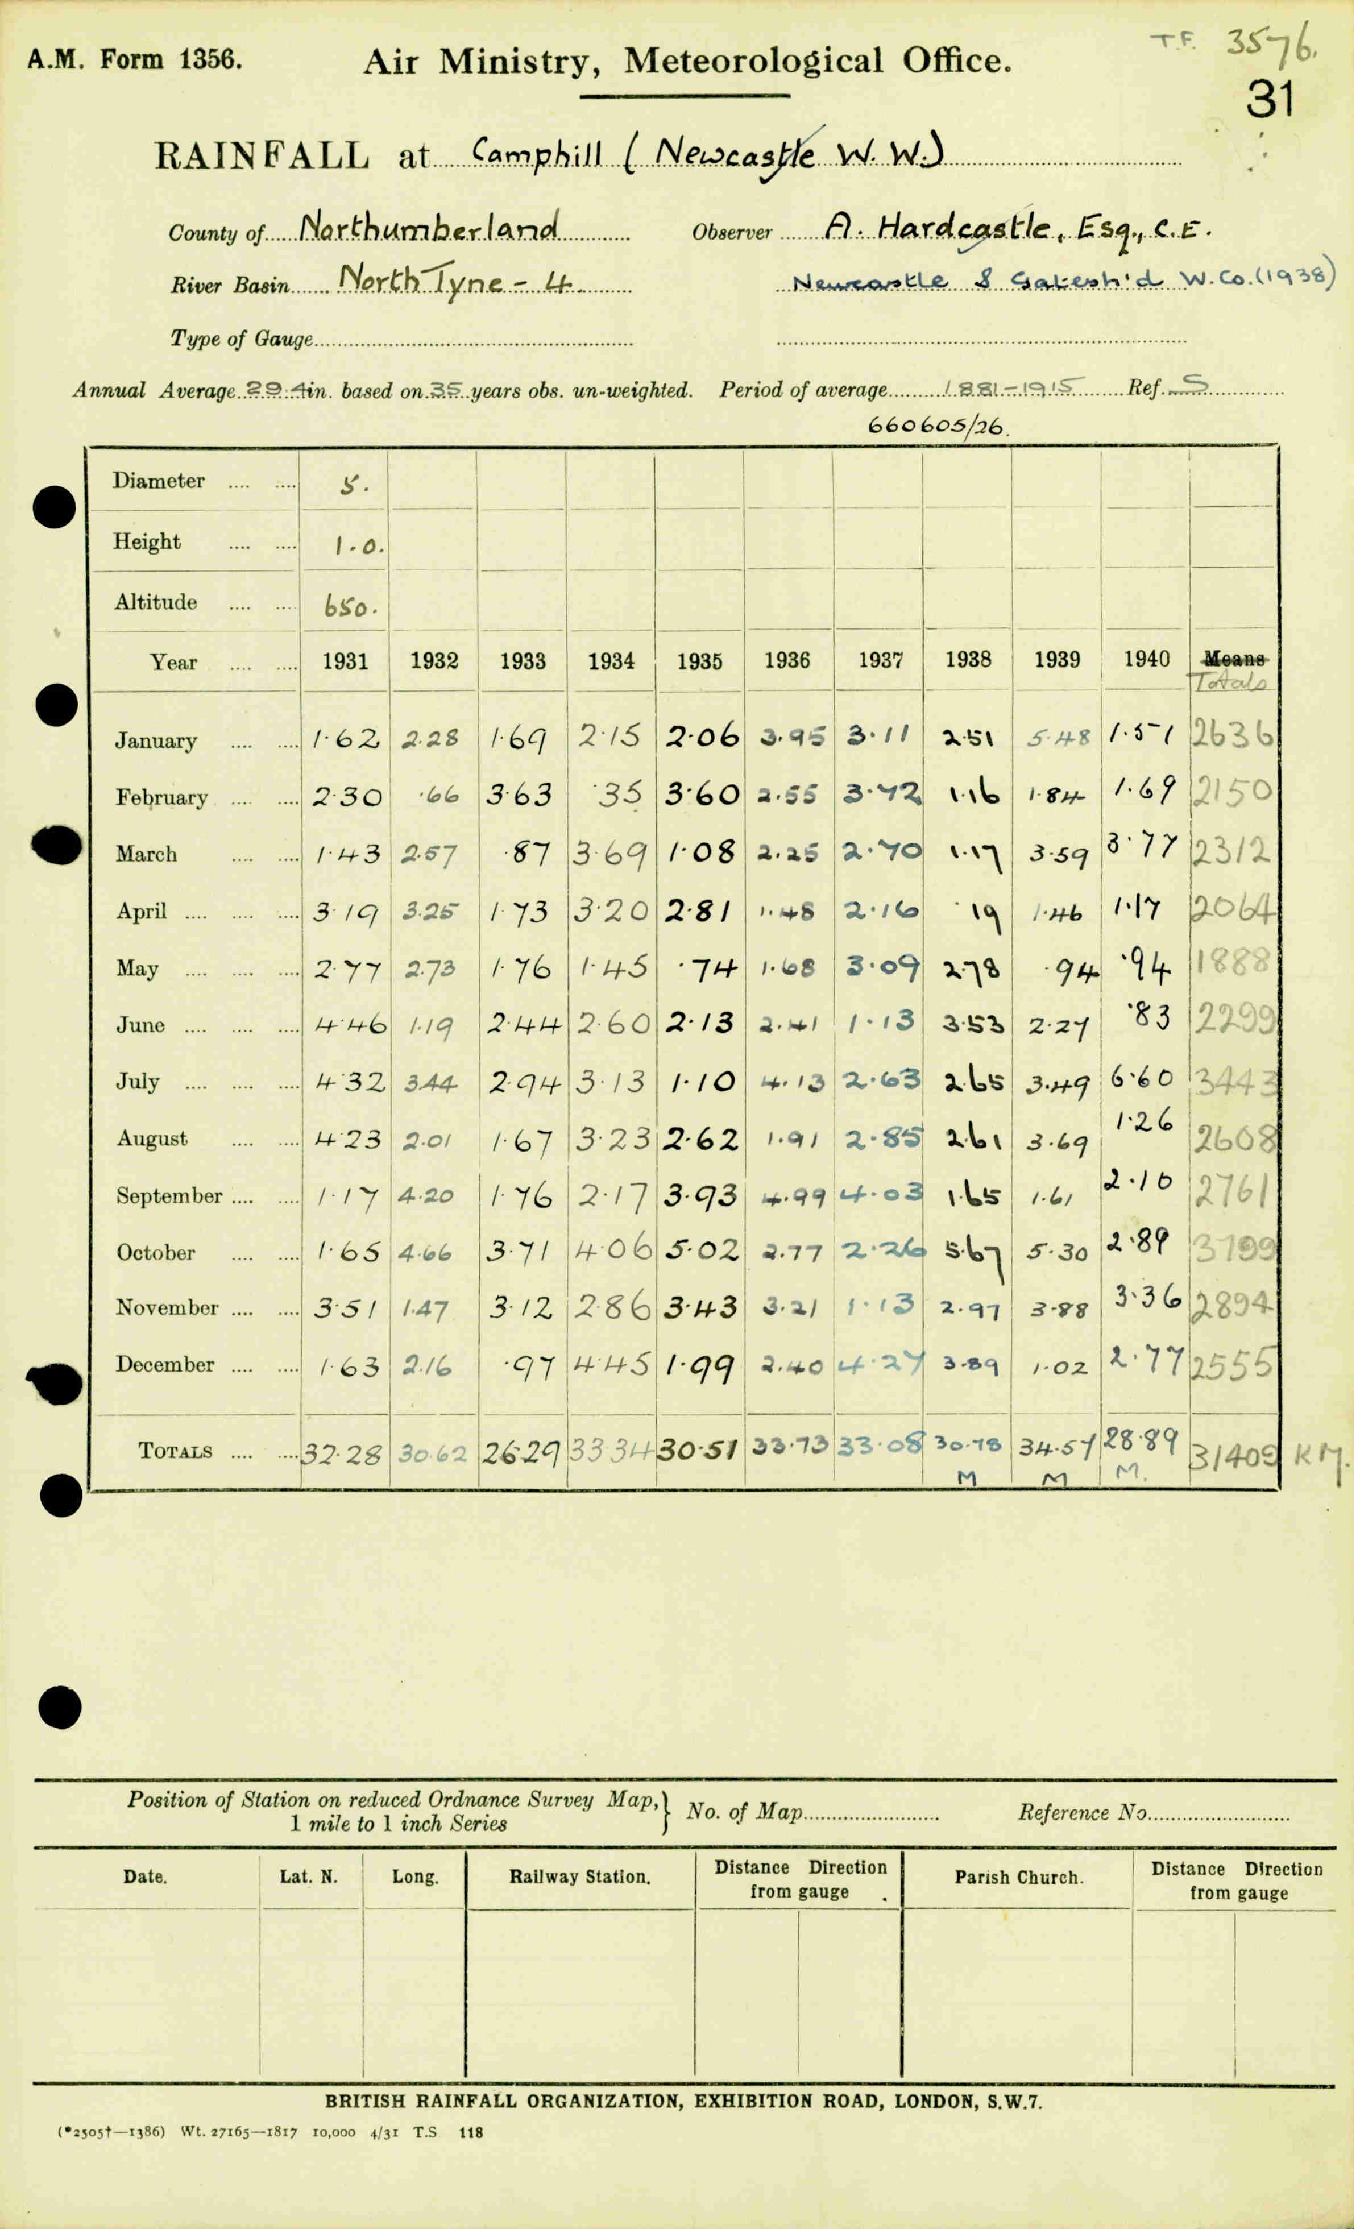 A.M. Form 1356.
Air Ministry, Meteorological Office.
T.F. 3576.
31
RAINFALL at Camphill (Newcastle W.W.)
County of Northumberland Observer A. Hardcastle, Esq., C.E.
River Basin North Tyne - 4 Newcastle & Gatesh'd W.Co. (1938)
Type of Gauge
Annual Average 29.4 in. based on 35 years obs. un-weighted. Period of average 1881-1915 Ref. S
660605/26.
Diameter 5.
Height 1.0.
Altitude 650.
Year 1931 1932 1933 1934 1935 1936 1937 1938 1939 1940 Means
Totals
January 1.62 2.28 1.69 2.15 2.06 3.95 3.11 2.51 5.48 1.51 2636
February 2.30 .66 3.63 .35 3.60 2.55 3.72 1.16 1.84 1.69 2150
March 1.43 2.57 .87 3.69 1.08 2.25 2.70 1.17 3.59 3.77 2312
April 3.19 3.25 1.73 3.20 2.81 1.48 2.16 .19 1.46 1.17 2064
May 2.77 2.73 1.76 1.45 .74 1.68 3.09 2.78 .94 .94 1888
June 4.46 1.19 2.44 2.60 2.13 2.41 1.13 3.53 2.27 .83 2299
July 4.32 3.44 2.94 3.13 1.10 4.13 2.63 2.65 3.49 6.60 3443
August 4.23 2.01 1.67 3.23 2.62 1.91 2.85 2.61 3.69 1.26 2608
September 1.17 4.20 1.76 2.17 3.93 4.99 4.03 1.65 1.61 2.10 2761
October 1.65 4.66 3.71 4.06 5.02 2.77 2.26 5.67 5.30 2.89 3799
November 3.51 1.47 3.12 2.86 3.43 3.21 1.13 2.97 3.88 3.36 2894
December 1.63 2.16 .97 4.45 1.99 2.40 4.27 3.89 1.02 2.77 2555
TOTALS 32.28 30.62 26.29 33.34 30.51 33.73 33.08 30.78 34.57 28.89 31409 KM.
M M M.
Position of Station on reduced Ordnance Survey Map,} No. of Map Reference No.
1 mile to 1 inch Series
Date. Lat. N. Long. Railway Station. Distance Direction from gauge Parish Church. Distance Direction from gauge
BRITISH RAINFALL ORGANIZATION, EXHIBITION ROAD, LONDON, S.W.7.
(*2505†—1386) Wt. 27165—1817 10,000 4/31 T.S 118